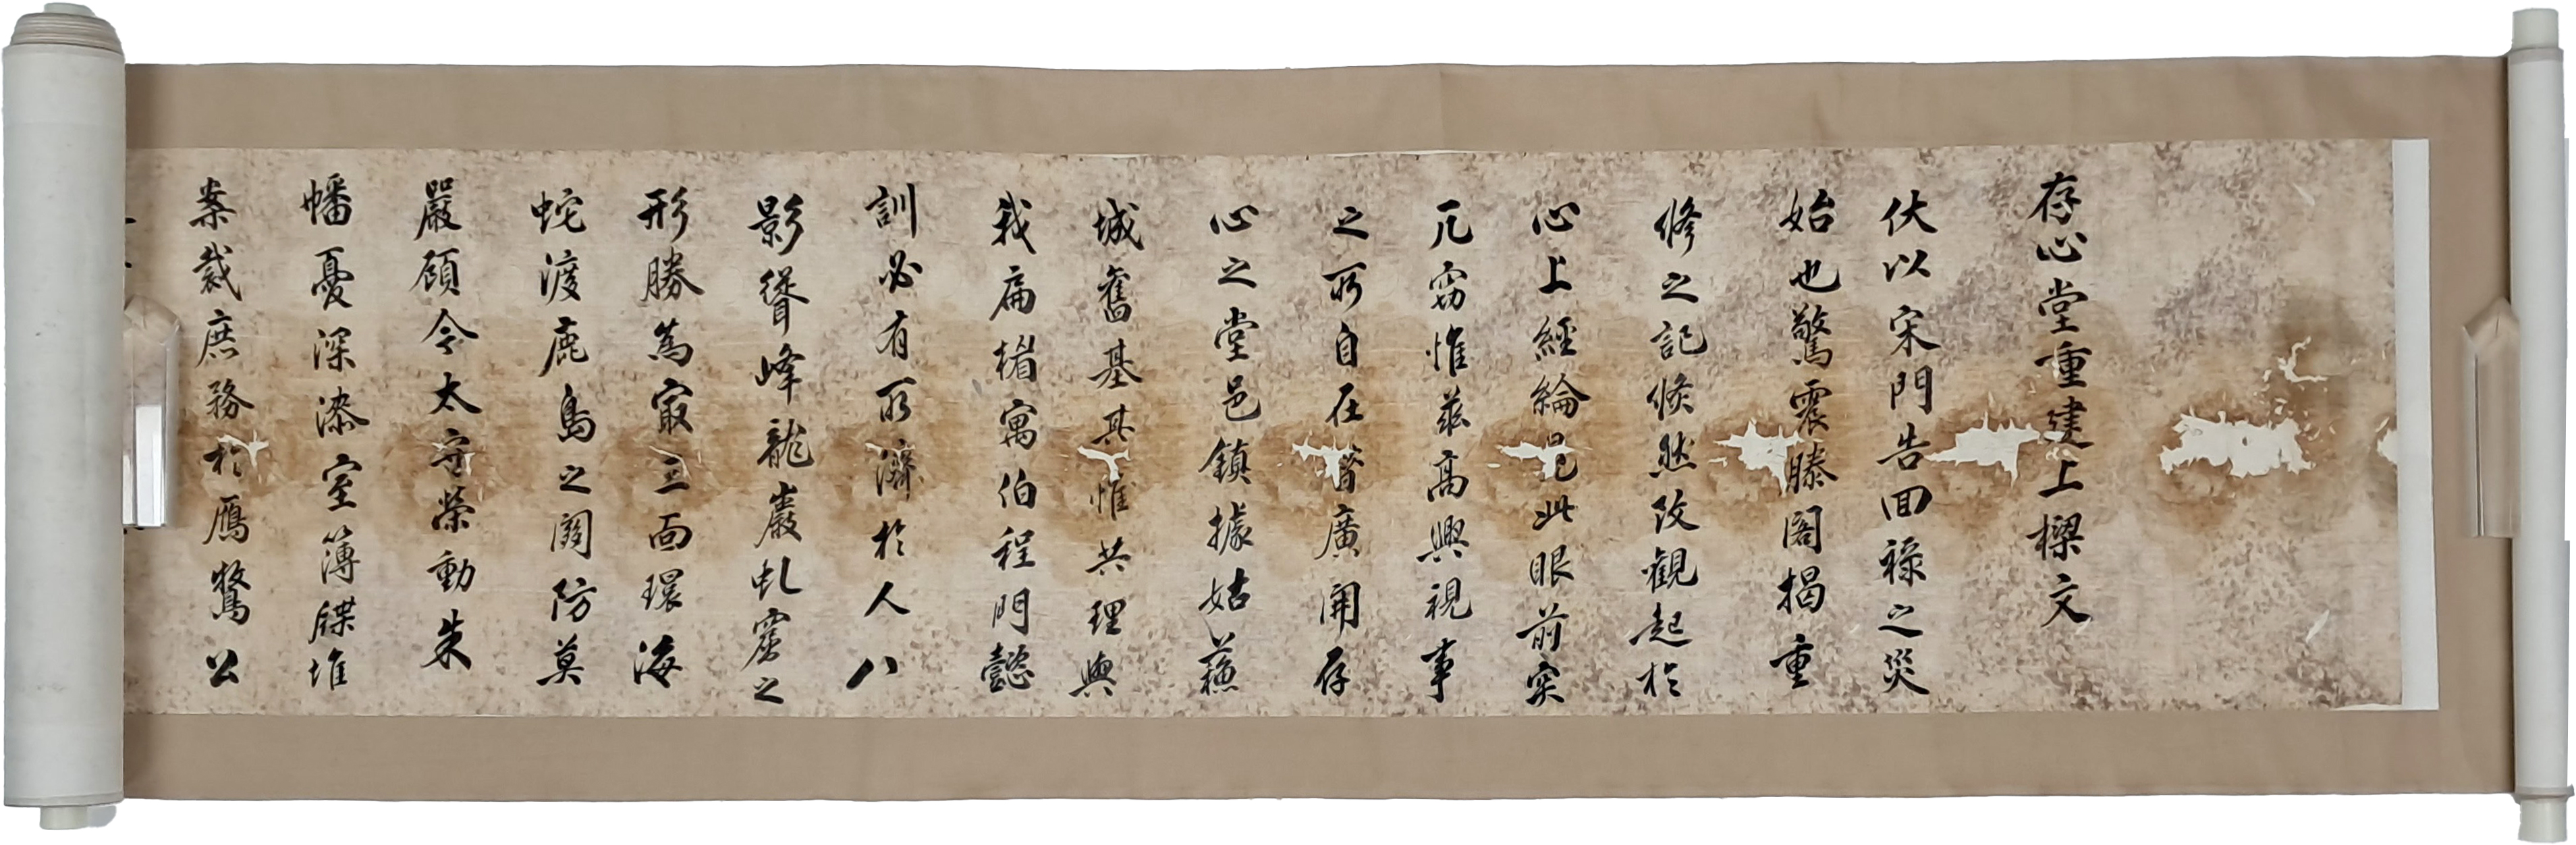 存心堂重建上樑文
伏以宋門告回祿之災
始也驚震滕閣揭重
修之記倏然改觀起於
心上經綸見此眼前突
兀竊惟茲高興視事
之所自在昔廣開存
心之堂邑鎮據姑蘓
城舊基其惟共理與
我扁楣寓伯程門懿
訓必有所濟於人八
影聳峰龍巖虬窟之
形勝為最三面環海
蛇渡鹿島之關防莫
嚴顧令太守榮動朱
幡憂深漆室簿牒堆
案裁庶務於鴈鶩公